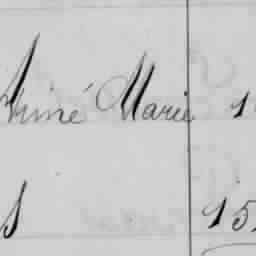 Aimé Marie 1
s 15